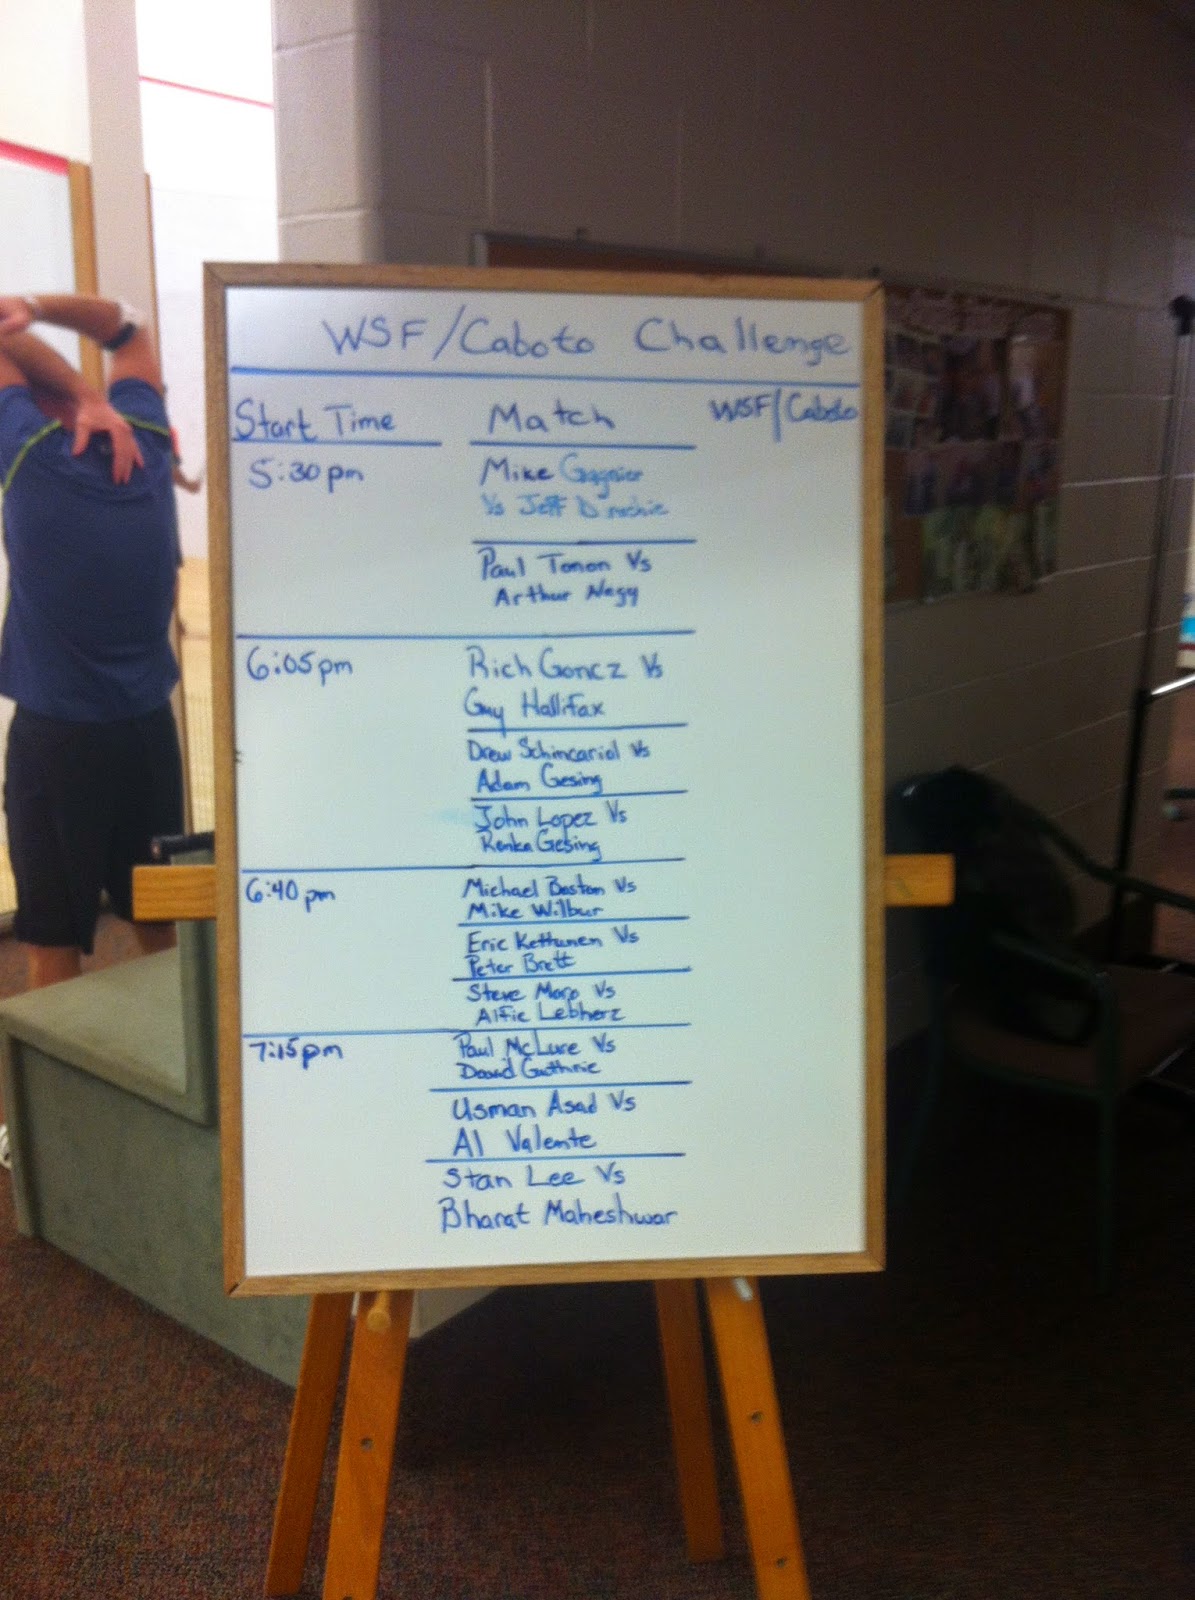 WSF/Caboto Challenge
Start Time Match WSF/Caboto
5:30pm Mike Gagnier
Vs Jeff
Paul Tonon Vs
Arthur Nagy
6:05pm Rich Goncz Vs
Guy Hallifax
Drew Schincariol Vs
Adam Gesing
John Lopez Vs
Renka Gesing
6:40pm Michael Boston Vs
Mike Wilbur
Eric Kettunen Vs
Peter Brett
Steve Moro Vs
Alfie Lebherz
7:15pm Paul McLure Vs
Guthrie
Usman Asad Vs
Al Valente
Stan Lee Vs
Bharat Maheshwar